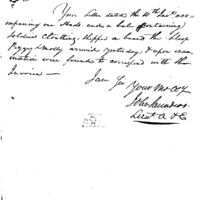 Your letter dated the 10th Inst. acc-
ompanying one Hhds. and a bale containing
soldiers cloathing, shipp'd on board the Sloop
Peggy & Molly arrived yesterday, & upon exam-
ination were found to correspond with the
Invoice —
I am Yr
Your Mo. Ob
John Saunders
Lieut A & E